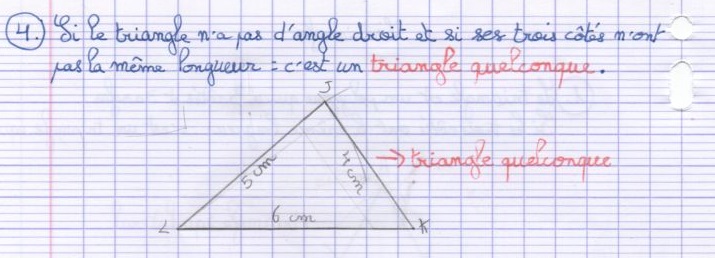 4. Si le triangle n'a pas d'angle droit et si ses trois côtés n'ont
pas la même longueur : c'est un triangle quelconque.
J
5 cm
4 cm
→ triangle quelconque
6 cm
L
K